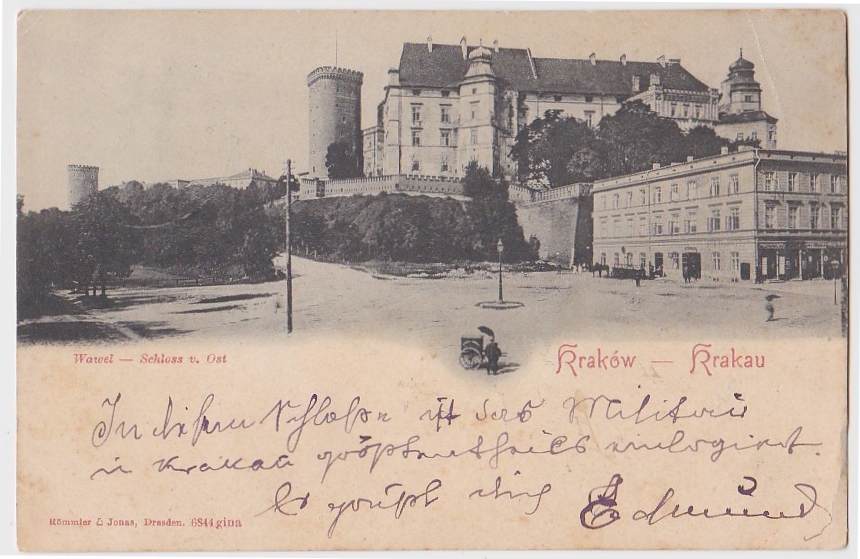 Wawel — Schloss v. Ost
Kraków — Krakau
In diesem Schloße ist das Militär
in Krakau größtentheils einlogiert.
Es grüßt dich Edmund
Römmler & Jonas, Dresden. 6844 gina